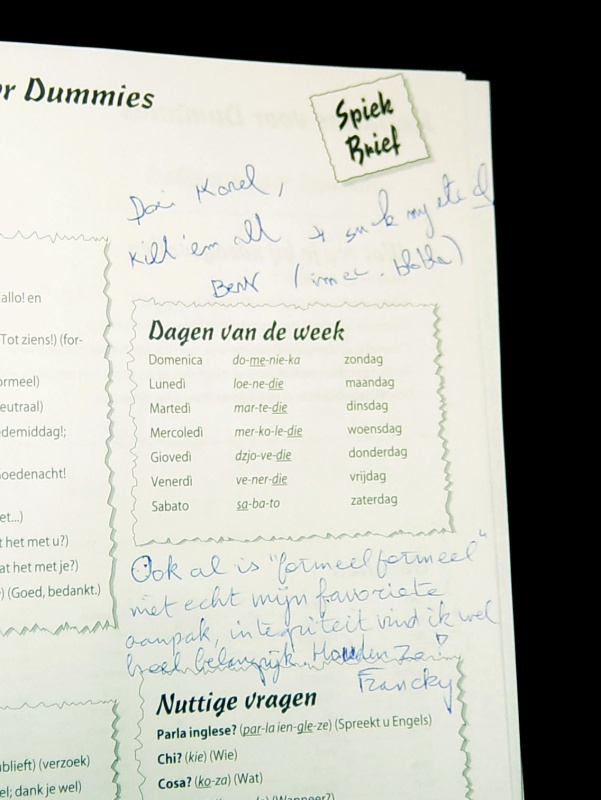 or Dummies
Spiek
Brief
Karel,
kill 'em all + suck my
Bert (imec. blabla)
allo! en
Tot ziens!) (for-
ormeel)
eutraal)
edemiddag!;
oedenacht!
et...)
t het met u?)
at het met je?)
) (Goed, bedankt.)
Dagen van de week
Domenica do-me-nie-ka zondag
Lunedì loe-ne-die maandag
Martedì mar-te-die dinsdag
Mercoledì mer-ko-le-die woensdag
Giovedì dzjo-ve-die donderdag
Venerdì ve-ner-die vrijdag
Sabato sa-ba-to zaterdag
Ook al is "formeel formeel"
niet echt mijn favoriete
aanpak, integriteit vind ik wel
heel belangrijk. Houden zo!
Francky
Nuttige vragen
Parla inglese? (par-la ien-gle-ze) (Spreekt u Engels)
Chi? (kie) (Wie)
Cosa? (ko-za) (Wat)
(Wanneer?)
ublieft) (verzoek)
el; dank je wel)